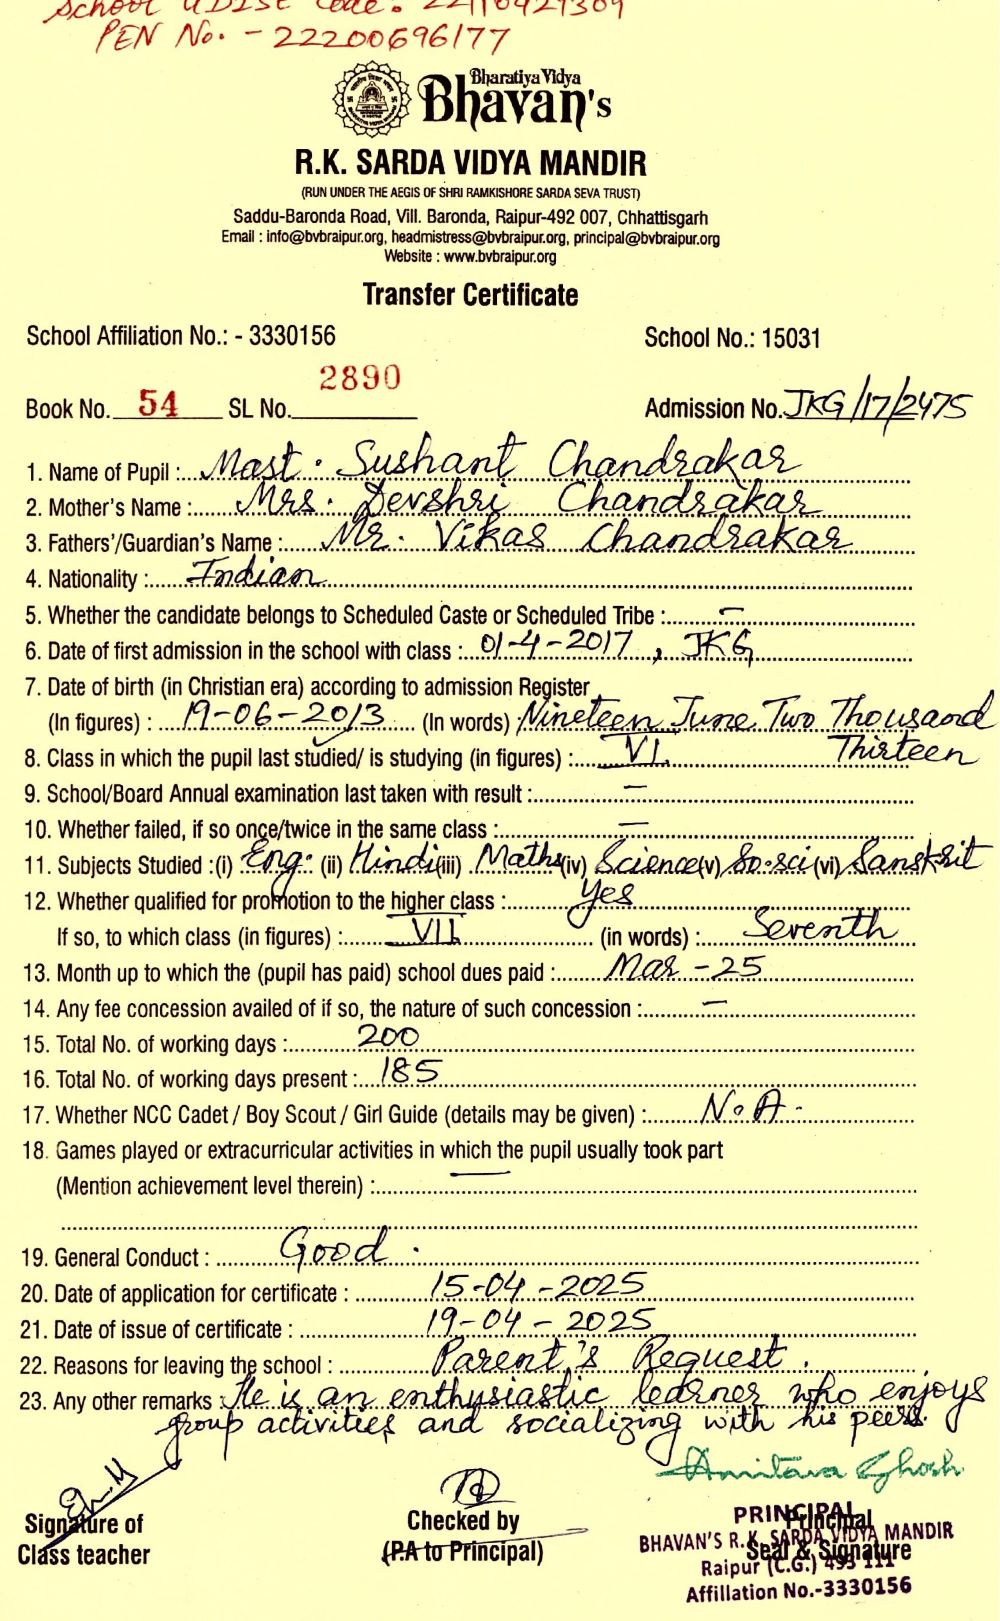 School UDISE Code. 22110427309
PEN No. - 22200696177
Bharatiya Vidya
Bhavan's
R.K. SARDA VIDYA MANDIR
(RUN UNDER THE AEGIS OF SHRI RAMKISHORE SARDA SEVA TRUST)
Saddu-Baronda Road, Vill. Baronda, Raipur-492 007, Chhattisgarh
Email : info@bvbraipur.org, headmistress@bvbraipur.org, principal@bvbraipur.org
Website : www.bvbraipur.org
Transfer Certificate
School Affiliation No.: - 3330156 School No.: 15031
Book No. 54 SL No. 2890 Admission No. JKG/17/2475
1. Name of Pupil : Mast. Sushant Chandrakar
2. Mother's Name : Mrs. Devshri Chandrakar
3. Fathers'/Guardian's Name : Mr. Vikas Chandrakar
4. Nationality : Indian
5. Whether the candidate belongs to Scheduled Caste or Scheduled Tribe : –
6. Date of first admission in the school with class : 01-4-2017, JKG
7. Date of birth (in Christian era) according to admission Register
(In figures) : 19-06-2013 (In words) Nineteen June Two Thousand
Thirteen
8. Class in which the pupil last studied/ is studying (in figures) : VI
9. School/Board Annual examination last taken with result : –
10. Whether failed, if so once/twice in the same class : –
11. Subjects Studied :(i) Eng. (ii) Hindi (iii) Maths (iv) Science (v) So.sci (vi) Sanskrit
12. Whether qualified for promotion to the higher class : Yes
If so, to which class (in figures) : VII (in words) : Seventh
13. Month up to which the (pupil has paid) school dues paid : Mar-25
14. Any fee concession availed of if so, the nature of such concession : –
15. Total No. of working days : 200
16. Total No. of working days present : 185
17. Whether NCC Cadet / Boy Scout / Girl Guide (details may be given) : N.A.
18. Games played or extracurricular activities in which the pupil usually took part
(Mention achievement level therein) : –
19. General Conduct : Good.
20. Date of application for certificate : 15-04-2025
21. Date of issue of certificate : 19-04-2025
22. Reasons for leaving the school : Parent's Request.
23. Any other remarks : He is an enthusiastic learner who enjoys
group activities and socializing with his peers.
Amitava Ghosh
Signature of
Class teacher
Checked by
(P.A to Principal)
Principal
Seal & Signature
PRINCIPAL
BHAVAN'S R.K. SARDA VIDYA MANDIR
Raipur (C.G.) 493 111
Affillation No.-3330156